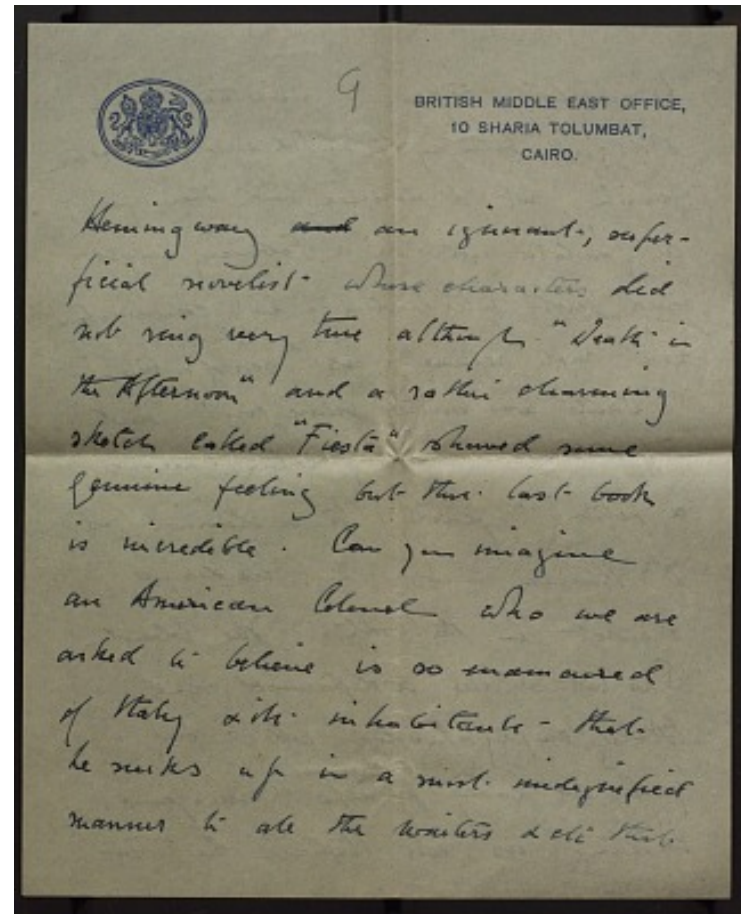 9
BRITISH MIDDLE EAST OFFICE,
10 SHARIA TOLUMBAT,
CAIRO.
Hemingway and an ignorant, super-
ficial novelist whose characters did
not ring very true although "Death in
the Afternoon" and a rather charming
sketch called "Fiesta" showed some
genuine feeling but this last book
is incredible. Can you imagine
an American Colonel who we are
asked to believe is so enamoured
of Italy & its inhabitants - that
he sucks up in a most undignified
manner to all the waiters & at that